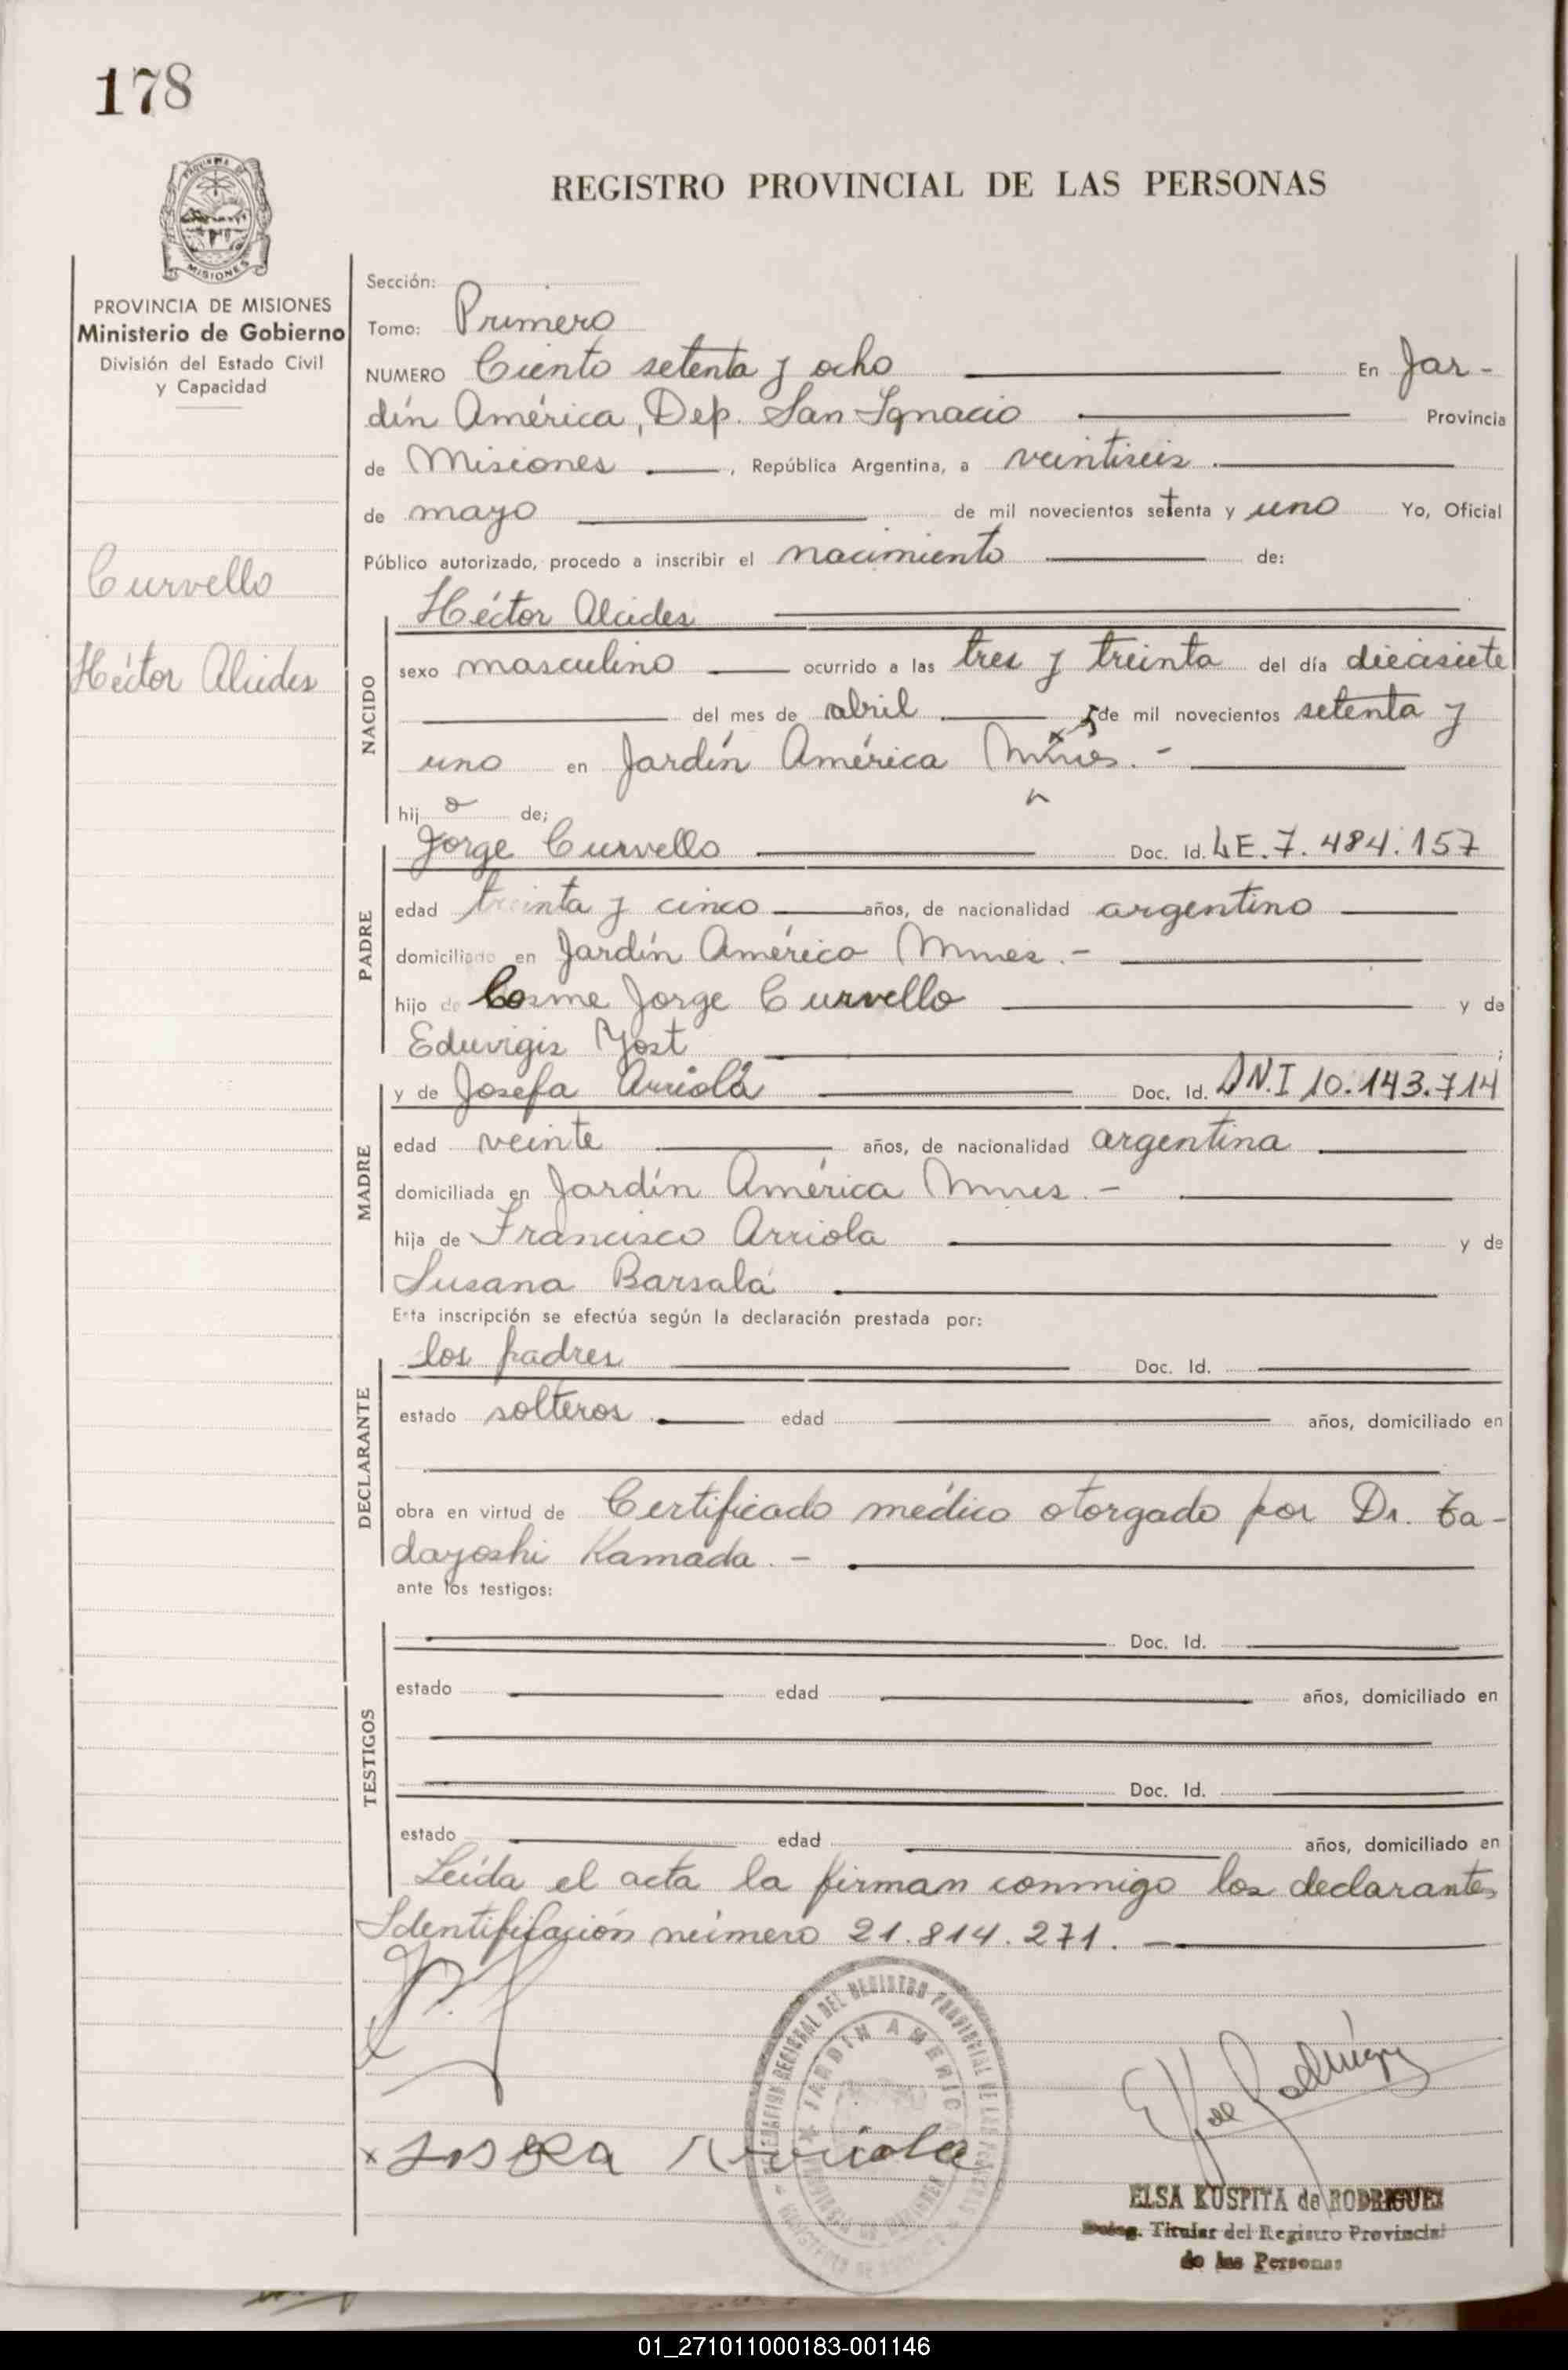 178
REGISTRO PROVINCIAL DE LAS PERSONAS
PROVINCIA DE MISIONES
Ministerio de Gobierno
División del Estado Civil
y Capacidad
Curvello
Héctor Alcides
Sección:
Tomo: Primero
NUMERO Ciento setenta y ocho En Jar-
dín América, Dep. San Ignacio Provincia
de Misiones, República Argentina, a veintiseis
de mayo de mil novecientos setenta y uno Yo, Oficial
Público autorizado, procedo a inscribir el nacimiento de:
Héctor Alcides
NACIDO
sexo masculino ocurrido a las tres y treinta del día diecisiete
del mes de abril de mil novecientos setenta y
uno en Jardín América Mnes.-
hijo de;
Jorge Curvello Doc. Id. LE. 7.484.157
PADRE
edad treinta y cinco años, de nacionalidad argentino
domiciliado en Jardín América Mnes.-
hijo de Cosme Jorge Curvello y de
Eduvigis Yost
y de Josefa Arriola Doc. Id. DN.I 10.143.714
MADRE
edad veinte años, de nacionalidad argentina
domiciliada en Jardín América Mnes.-
hija de Francisco Arriola y de
Susana Barsalá
Esta inscripción se efectúa según la declaración prestada por:
los padres Doc. Id.
DECLARANTE
estado solteros edad años, domiciliado en
obra en virtud de Certificado médico otorgado por Dr. Ta-
dayoshi Kamada.-
ante los testigos:
TESTIGOS
Doc. Id.
estado edad años, domiciliado en
Doc. Id.
estado edad años, domiciliado en
Leída el acta la firman conmigo los declarantes
Identificación número 21.814.271.-
x Josefa Arriola
DELEGACION REGIONAL DEL REGISTRO PROVINCIAL DE LAS PERSONAS
JARDIN AMERICA
E K de Rodríguez
ELSA KUSPITA de RODRIGUEZ
Deleg. Titular del Registro Provincial
de las Personas
01_271011000183-001146